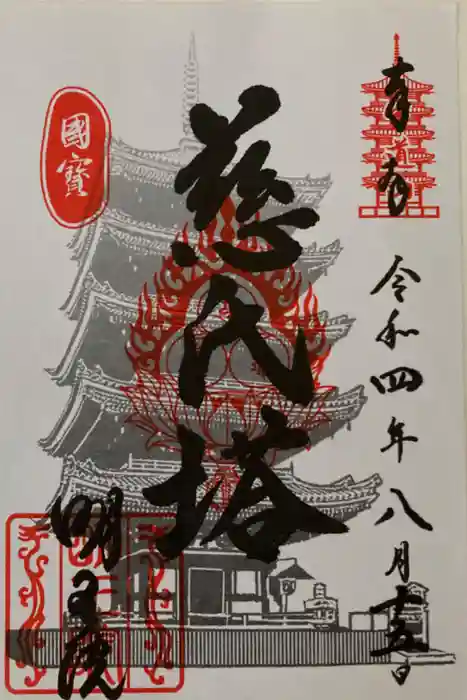 奉拝
令和四年八月十五日
慈氏塔
國寶
明王院